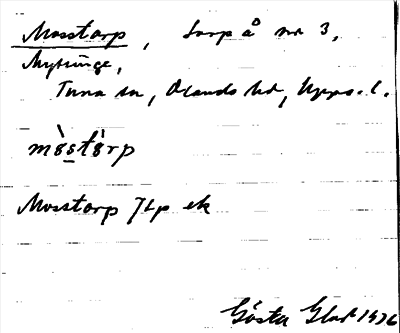 Mosstorp, torp å nr 3,
Mytinge,
Tuna sn, Olands hd, Upps. l.
mòstòrp
Mosstorp JLp ek
Gösta Glad 1936